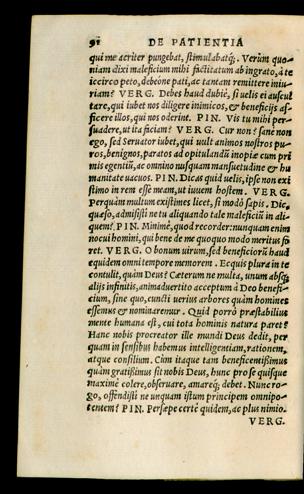 91 DE PATIENTIA
qui me acriter pungebat, stimulabatq́;. Verùm quo-
niam dixi maleficium mihi factitatum ab ingrato, à te
iccirco peto, debeóne pati, ac tantam remittere iniu-
riam? VERG. Debes haud dubiè, si uelis ei auscul
tare, qui iubet nos diligere inimicos, & beneficijs af-
ficere illos, qui nos oderint. PIN. Vis tu mihi per-
suadere, ut ita faciam? VERG. Cur non? sanè non
ego, sed Seruator iubet, qui uult animos nostros pu-
ros, benignos, paratos ad opitulandũ inopiæ cum pri
mis egentiũ, ac omnino nusquam mansuetudine & hu
manitate uacuos. PIN. Dicas quid uelis, ipse non exi
stimo in rem esse meam, ut iuuem hostem. VERG.
Perquàm multum existimes licet, si modò sapis. Dic,
quæso, admisisti ne tu aliquando tale maleficiũ in ali-
quem? PIN. Minimè, quod recorder: nunquam enim
nocui homini, qui bene de me quoquo modo meritus fo
ret. VERG. O bonum uirum, sed beneficiorũ haud
equidem omni tempore memorem. Ecquis plura in te
contulit, quàm Deus? Cæterum ne multa, unum absq́;
alijs infinitis, animaduertito acceptum à Deo benefi-
cium, sine quo, cuncti uerius arbores quàm homines
essemus & nominaremur. Quid porrò præstabilius
mente humana est, cui tota hominis natura paret?
Hanc nobis procreator ille mundi Deus dedit, per
quam in sensibus habemus intelligentiam, rationem,
atque consilium. Cùm itaque tam beneficentißimus
quàm gratißimus sit nobis Deus, hunc pro se quisque
maximè colere, obseruare, amareq́; debet. Nunc ro-
go, offendisti ne unquam istum principem omnipo-
tentem? PIN. Persæpe certè quidem, ac plus nimio.
VERG.